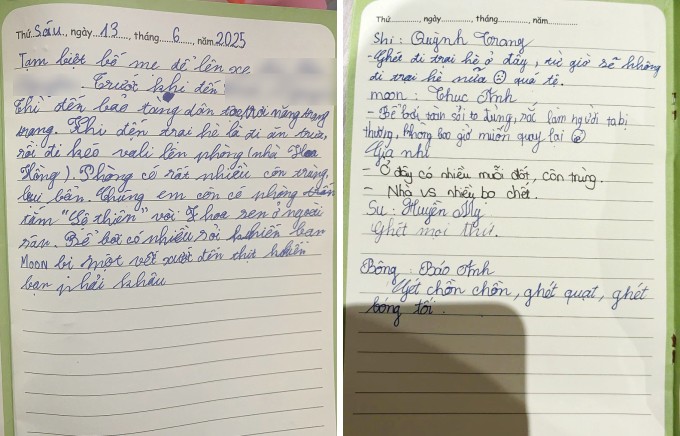 Thứ Sáu, ngày 13, tháng 6, năm 2025
Tạm biệt bố mẹ để lên xe
Trước khi đến
thì đến bảo tàng dân tộc, trời nắng trang
trang. Khi đến trại hè là đi ăn trưa,
rồi đi kéo vali lên phòng (nhà Hoa
Hồng). Phòng có rất nhiều côn trùng,
bụi bẩn. Chúng em còn có phòng
tắm "Lộ thiên" với 7 hoa sen ở ngoài
sân. Bể bơi có nhiều sỏi khiến bạn
MOON bị một vết xước đến thịt khiến
bạn phải khâu
Thứ, ngày, tháng, năm
Shi : Quỳnh Trang
- Ghét đi trại hè ở đây, từ giờ sẽ không
đi trại hè nữa quá tệ.
moon : Thục Anh
- Bể bơi toàn sỏi to đùng, sắc làm người ta bị
thương, không bao giờ muốn quay lại
Gia nhi
- Ở đây có nhiều muỗi đốt, côn trùng.
- Nhà vs nhiều bọ chết.
Su : Huyền My
Ghét mọi thứ.
Bông : Bảo Anh
Ghét chồn chồn, ghét quạt, ghét
bóng tối.